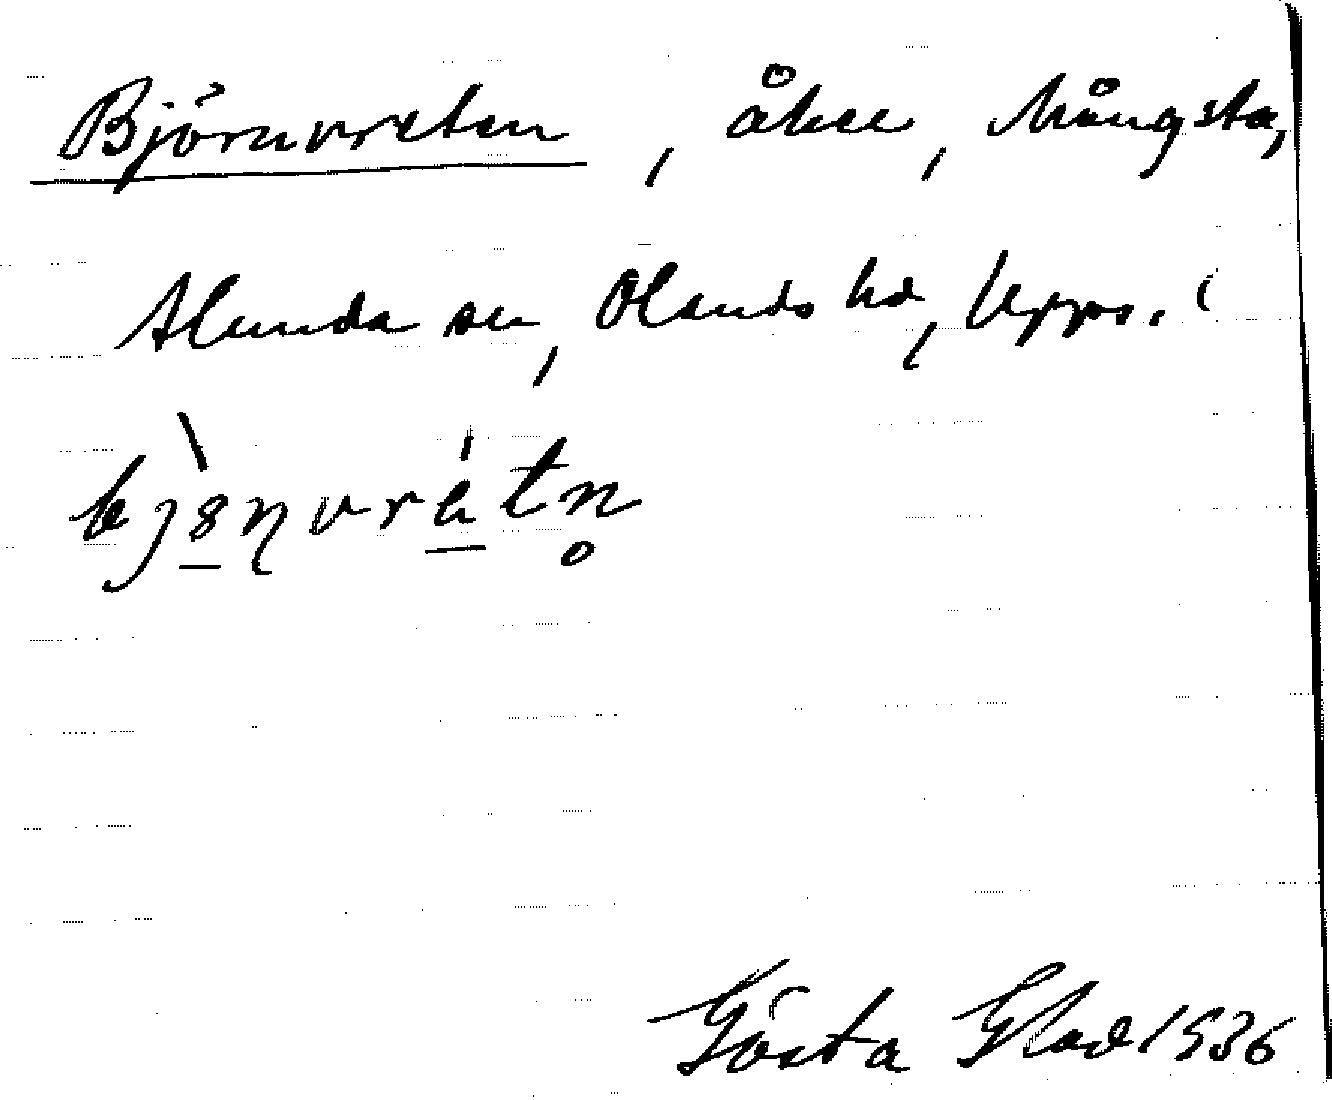 Björnvreten, åker, Mångsta,
Alunda sn, Olands hd, Upps.
Gösta Glad 1936